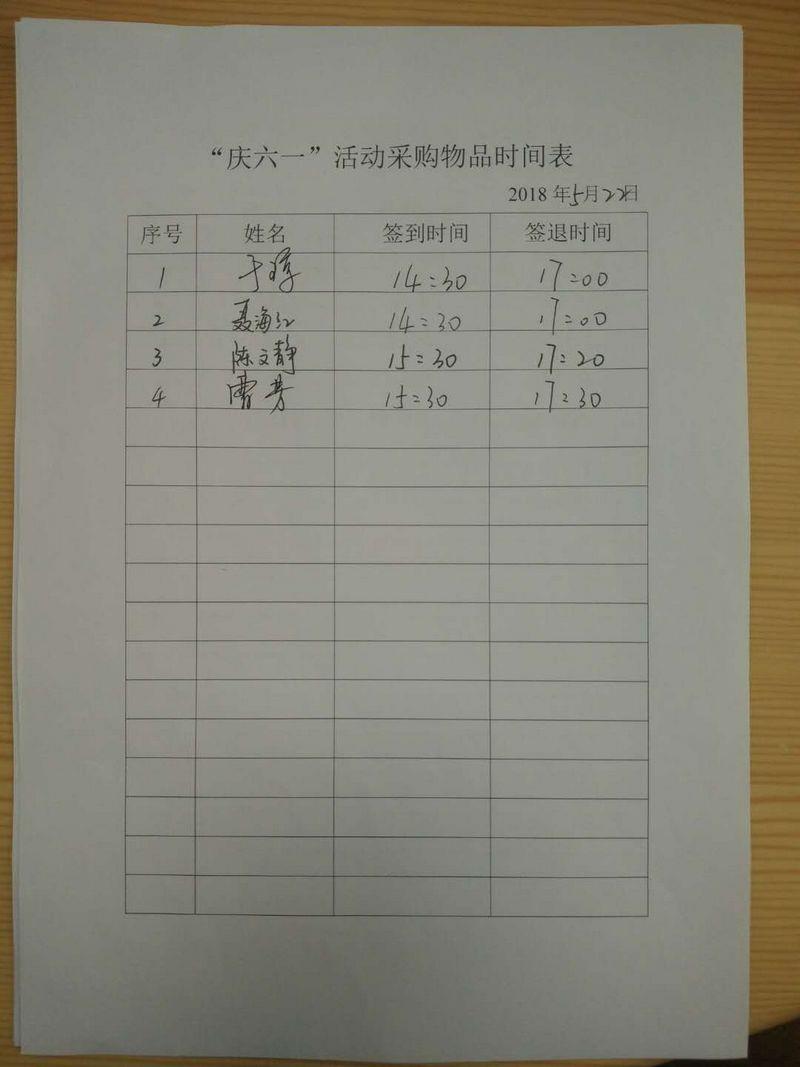 “庆六一”活动采购物品时间表
2018年5月22日
序号 姓名 签到时间 签退时间
1 于 14:30 17:00
2 聂海红 14:30 17:00
3 陈文静 15:30 17:20
4 曹芳 15:30 17:30